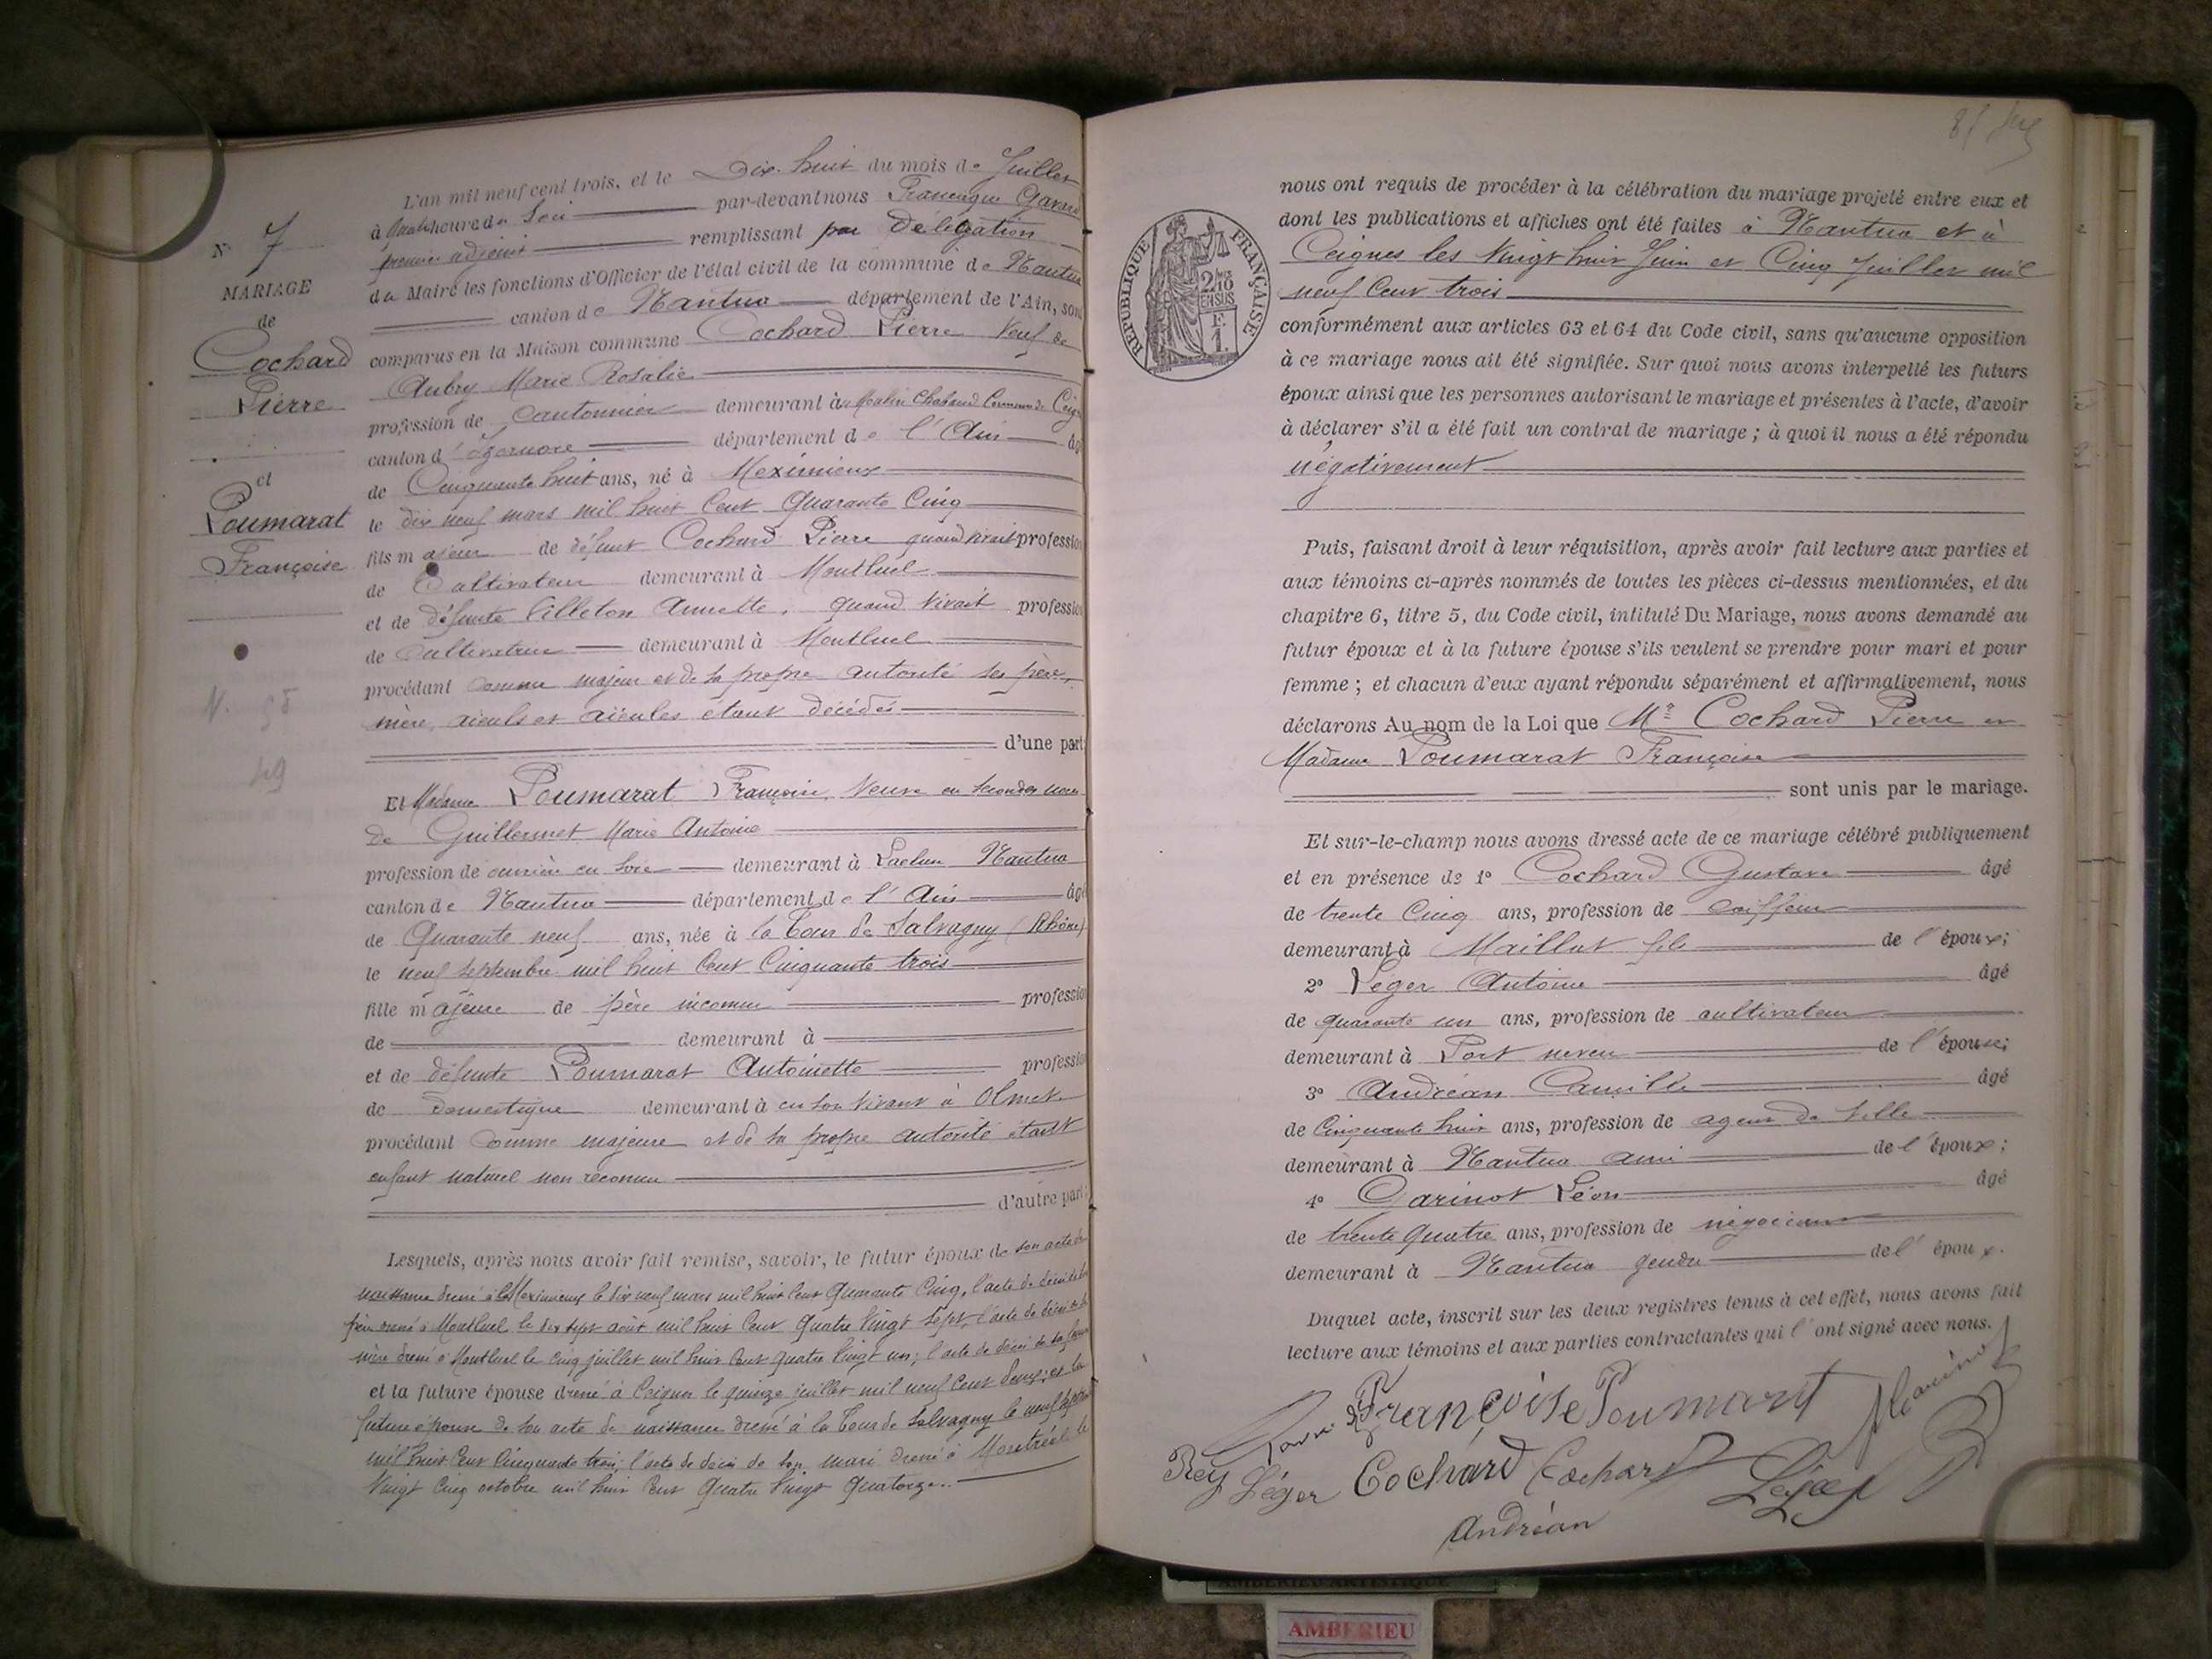 L'an mil neuf cent trois, et le Dix-huit du mois de Juillet
à quatre heure du Soir par-devant nous Francisque Gavard
premier adjoint remplissant par Délégation
du Maire les fonctions d'Officier de l'état civil de la commune de Nantua
canton de Nantua département de l'Ain, sont
comparus en la Maison commune Cochard Pierre Veuf de
Aubry Marie Rosalie
profession de Cantonnier demeurant à Moulin Chabaud Commune de
canton d'Izernore département de l'Ain âgé
de Cinquante huit ans, né à Meximieux
le dix neuf mars mil huit Cent Quarante Cinq
fils majeur de défunt Cochard Pierre quand vivait profession
de Cultivateur demeurant à Montluel
et de défunte Villeton Annette, quand Vivait profession
de Cultivatrice demeurant à Montluel
procédant Comme majeur et de sa propre autorité ses père,
mère, aieuls et aieules étant décédés
d'une part
N° 7
MARIAGE
de
Cochard
Pierre
et
Poumarat
Françoise
N. 58
49
Et Madame Poumarat Françoise, Veuve en secondes noces
de Guillermet Marie Antoine
profession de ouvrière en soie demeurant à Nantua
canton de Nantua département de l'Ain âgé
de Quarante neuf ans, née à la Tour de Salvagny (Rhône)
le neuf septembre mil huit Cent Cinquante trois
fille majeure de père inconnu profession
de demeurant à
et de défunte Poumarat Antoinette profession
de domestique demeurant à en son Vivant à Olmet
procédant Comme majeure et de sa propre autorité étant
enfant naturel non reconnu
d'autre part;
Lesquels, après nous avoir fait remise, savoir, le futur époux de son acte de
naissance dressé à Meximieux le dix neuf mars mil huit Cent Quarante Cinq, l'acte de décès de son
père dressé à Montluel le dix sept août mil huit Cent Quatre Vingt Sept, l'acte de décès de sa
mère dressé à Montluel le cinq juillet mil huit Cent quatre Vingt un; l'acte de décès de sa femme
et la future épouse dressé à Ceignes le quinze juillet mil neuf Cent deux; et la
future épouse de son acte de naissance dressé à la Tour de Salvagny le neuf septembre
mil huit Cent Cinquante trois, l'acte de décès de son mari dressé à Montréal le
Vingt Cinq octobre mil huit Cent Quatre Vingt Quatorze.
nous ont requis de procéder à la célébration du mariage projeté entre eux et
dont les publications et affiches ont été faites à Nantua et à
Ceignes les Vingt huit Juin et Cinq Juillet mil
neuf Cent trois
conformément aux articles 63 et 64 du Code civil, sans qu'aucune opposition
à ce mariage nous ait été signifiée. Sur quoi nous avons interpellé les futurs
époux ainsi que les personnes autorisant le mariage et présentes à l'acte, d'avoir
à déclarer s'il a été fait un contrat de mariage ; à quoi il nous a été répondu
négativement
RÉPUBLIQUE FRANÇAISE
2/10
EN SUS
F.
1.
Puis, faisant droit à leur réquisition, après avoir fait lecture aux parties et
aux témoins ci-après nommés de toutes les pièces ci-dessus mentionnées, et du
chapitre 6, titre 5, du Code civil, intitulé Du Mariage, nous avons demandé au
futur époux et à la future épouse s'ils veulent se prendre pour mari et pour
femme ; et chacun d'eux ayant répondu séparément et affirmativement, nous
déclarons Au nom de la Loi que Mr Cochard Pierre et
Madame Poumarat Françoise
sont unis par le mariage.
Et sur-le-champ nous avons dressé acte de ce mariage célébré publiquement
et en présence de 1° Cochard Gustave âgé
de trente Cinq ans, profession de Coiffeur
demeurant à Maillat fils de l'époux;
2° Léger Antoine âgé
de quarante un ans, profession de cultivateur
demeurant à Port neveu de l'épouse;
3° Andréan Camille âgé
de Cinquante huit ans, profession de agent de Ville
demeurant à Nantua ami de l'époux;
4° Garinot Léon âgé
de trente Quatre ans, profession de négociant
demeurant à Nantua gendre de l'époux.
Duquel acte, inscrit sur les deux registres tenus à cet effet, nous avons fait
lecture aux témoins et aux parties contractantes qui l'ont signé avec nous.
Françoise Poumarat
Rey Léger Cochard Cochard
Andréan
AMBÉRIEU ARTISTIQUE
AMBERIEU